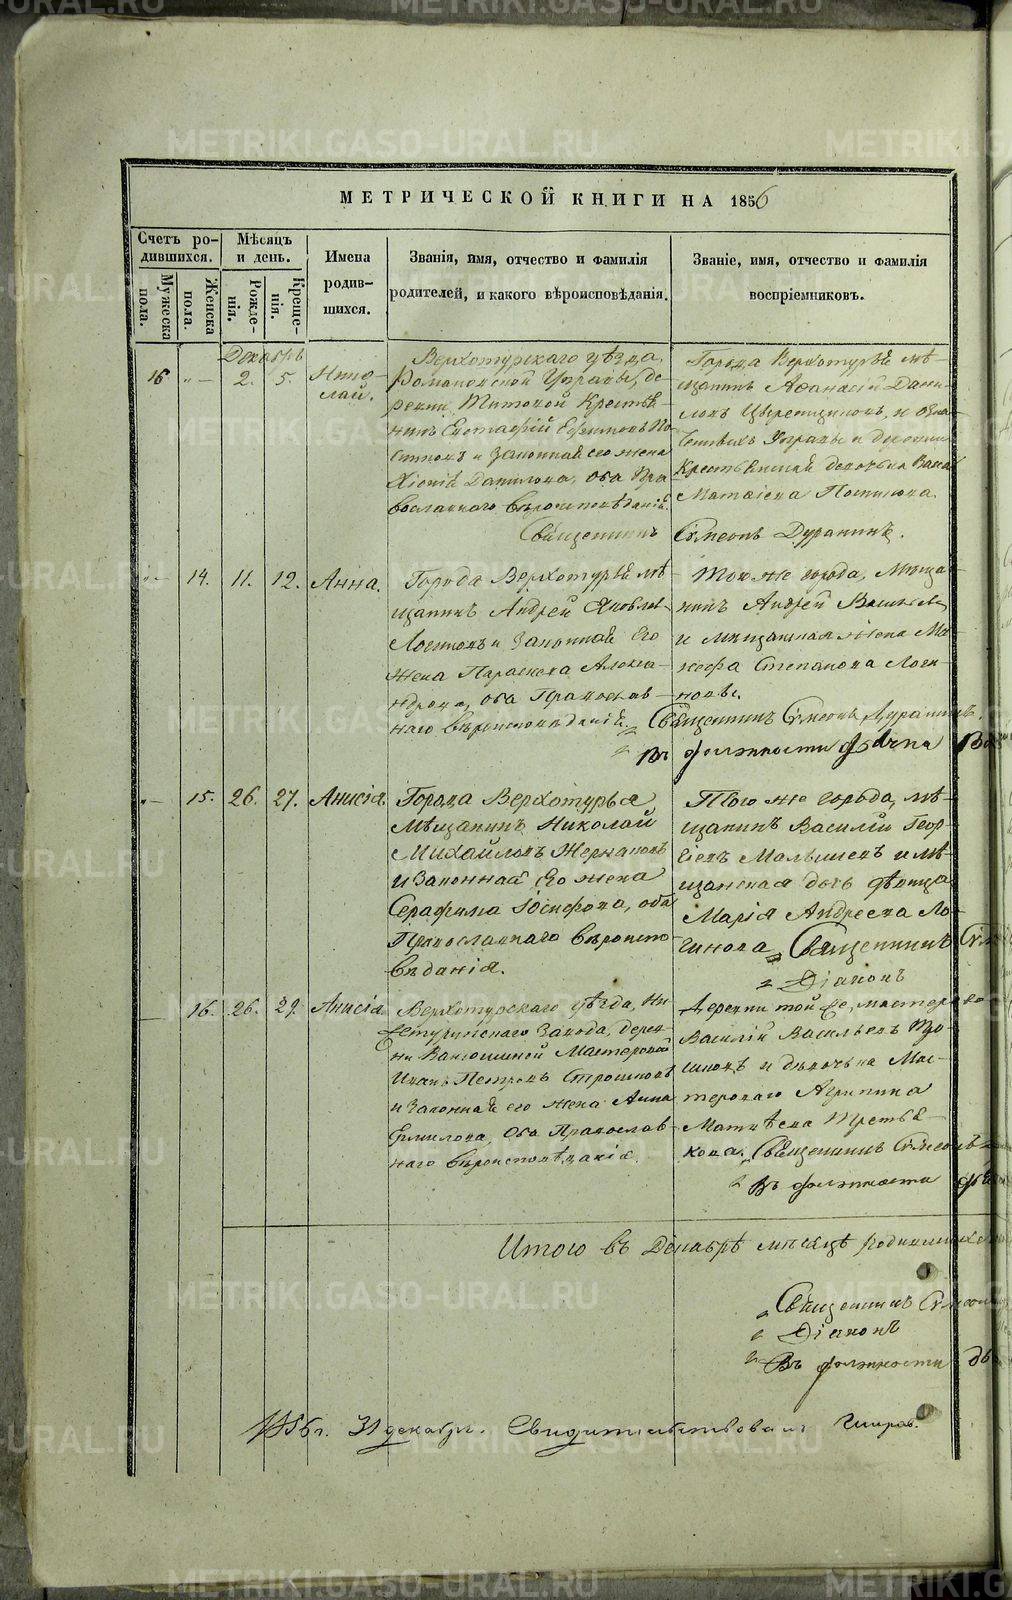 METRIKI.GASO-URAL.RU
МЕТРИЧЕСКОЙ КНИГИ НА 1856
Счетъ ро-
дившихся.
Мѣсяцъ
и день.
Имена
родив-
шихся.
Званія, имя, отчество и фамилія
родителей, и какого вѣроисповѣданія.
Званіе, имя, отчество и фамилія
воспріемниковъ.
Мужеска
пола.
Женска
пола.
Рожде-
нія.
Креще-
нія.
Декабрь
16 „— 2. 5. Нико-
лай.
Верхотурскаго уѣзда,
Романовской Управы, де-
ревни Титовой Крестья-
нинъ Ефимовъ По-
и Законная его жена
Данилова, Оба Пра-
вославнаго вѣроисповѣданія.
Города Верхотурья мѣ-
щанинъ Аѳанасій Дани-
ловъ и озна-
ченныхъ Управы и деревни
Крестьянская девочька
Матѳіева
Священникъ Сѵмеонъ Дуранинъ.
„— 14. 11. 12. Анна.
Города Верхотурья мѣ-
щанинъ Андрей Яковлевъ
Логиновъ и Законная Его
жена Параскева Алекса-
ндрова, Оба Православ-
наго вѣроисповѣданія.
Того же города, Мѣща-
нинъ Андрей
и мѣщанская жена Ма-
Степанова Логи-
новы.
Священникъ Сѵмеонъ Дуранинъ.
„ Въ должности дьячка
„— 15. 26. 27. Анисія
Города Верхотурья
мѣщанинъ Николай
Михайловъ Жернаковъ
и Законная Его жена
Серафима Іосифова, оба
Православнаго вѣроиспо-
вѣданія.
Того же города, мѣ-
щанинъ Василій Геор-
гіевъ Малышевъ и мѣ-
щанская дочь дѣвица
Марія Андреева Ло-
гинова „ Священникъ Сѵм
„ Діаконъ
— 16. 26. 29. Анисія
Верхотурскаго уѣзда, Ни-
жетуринскаго Завода, дерев-
ни Мастеровой
Иванъ Петровъ
и Законная его жена Анна
Ермилова, Оба Православ-
наго вѣроисповѣданія.
Деревни той же, мастеровой
Василій Васильевъ
и дѣвочька Мас-
тероваго Агрипина
Матвѣева Третья-
кова. „ Священникъ Сѵмеонъ
„ Въ должности дья
Итого въ Декабрѣ мѣсяцѣ родившихся
„ Священникъ Сѵмеонъ
„ Діаконъ
„ Въ должности дь
1856 г. 31 декабр. Свидѣтельствовалъ